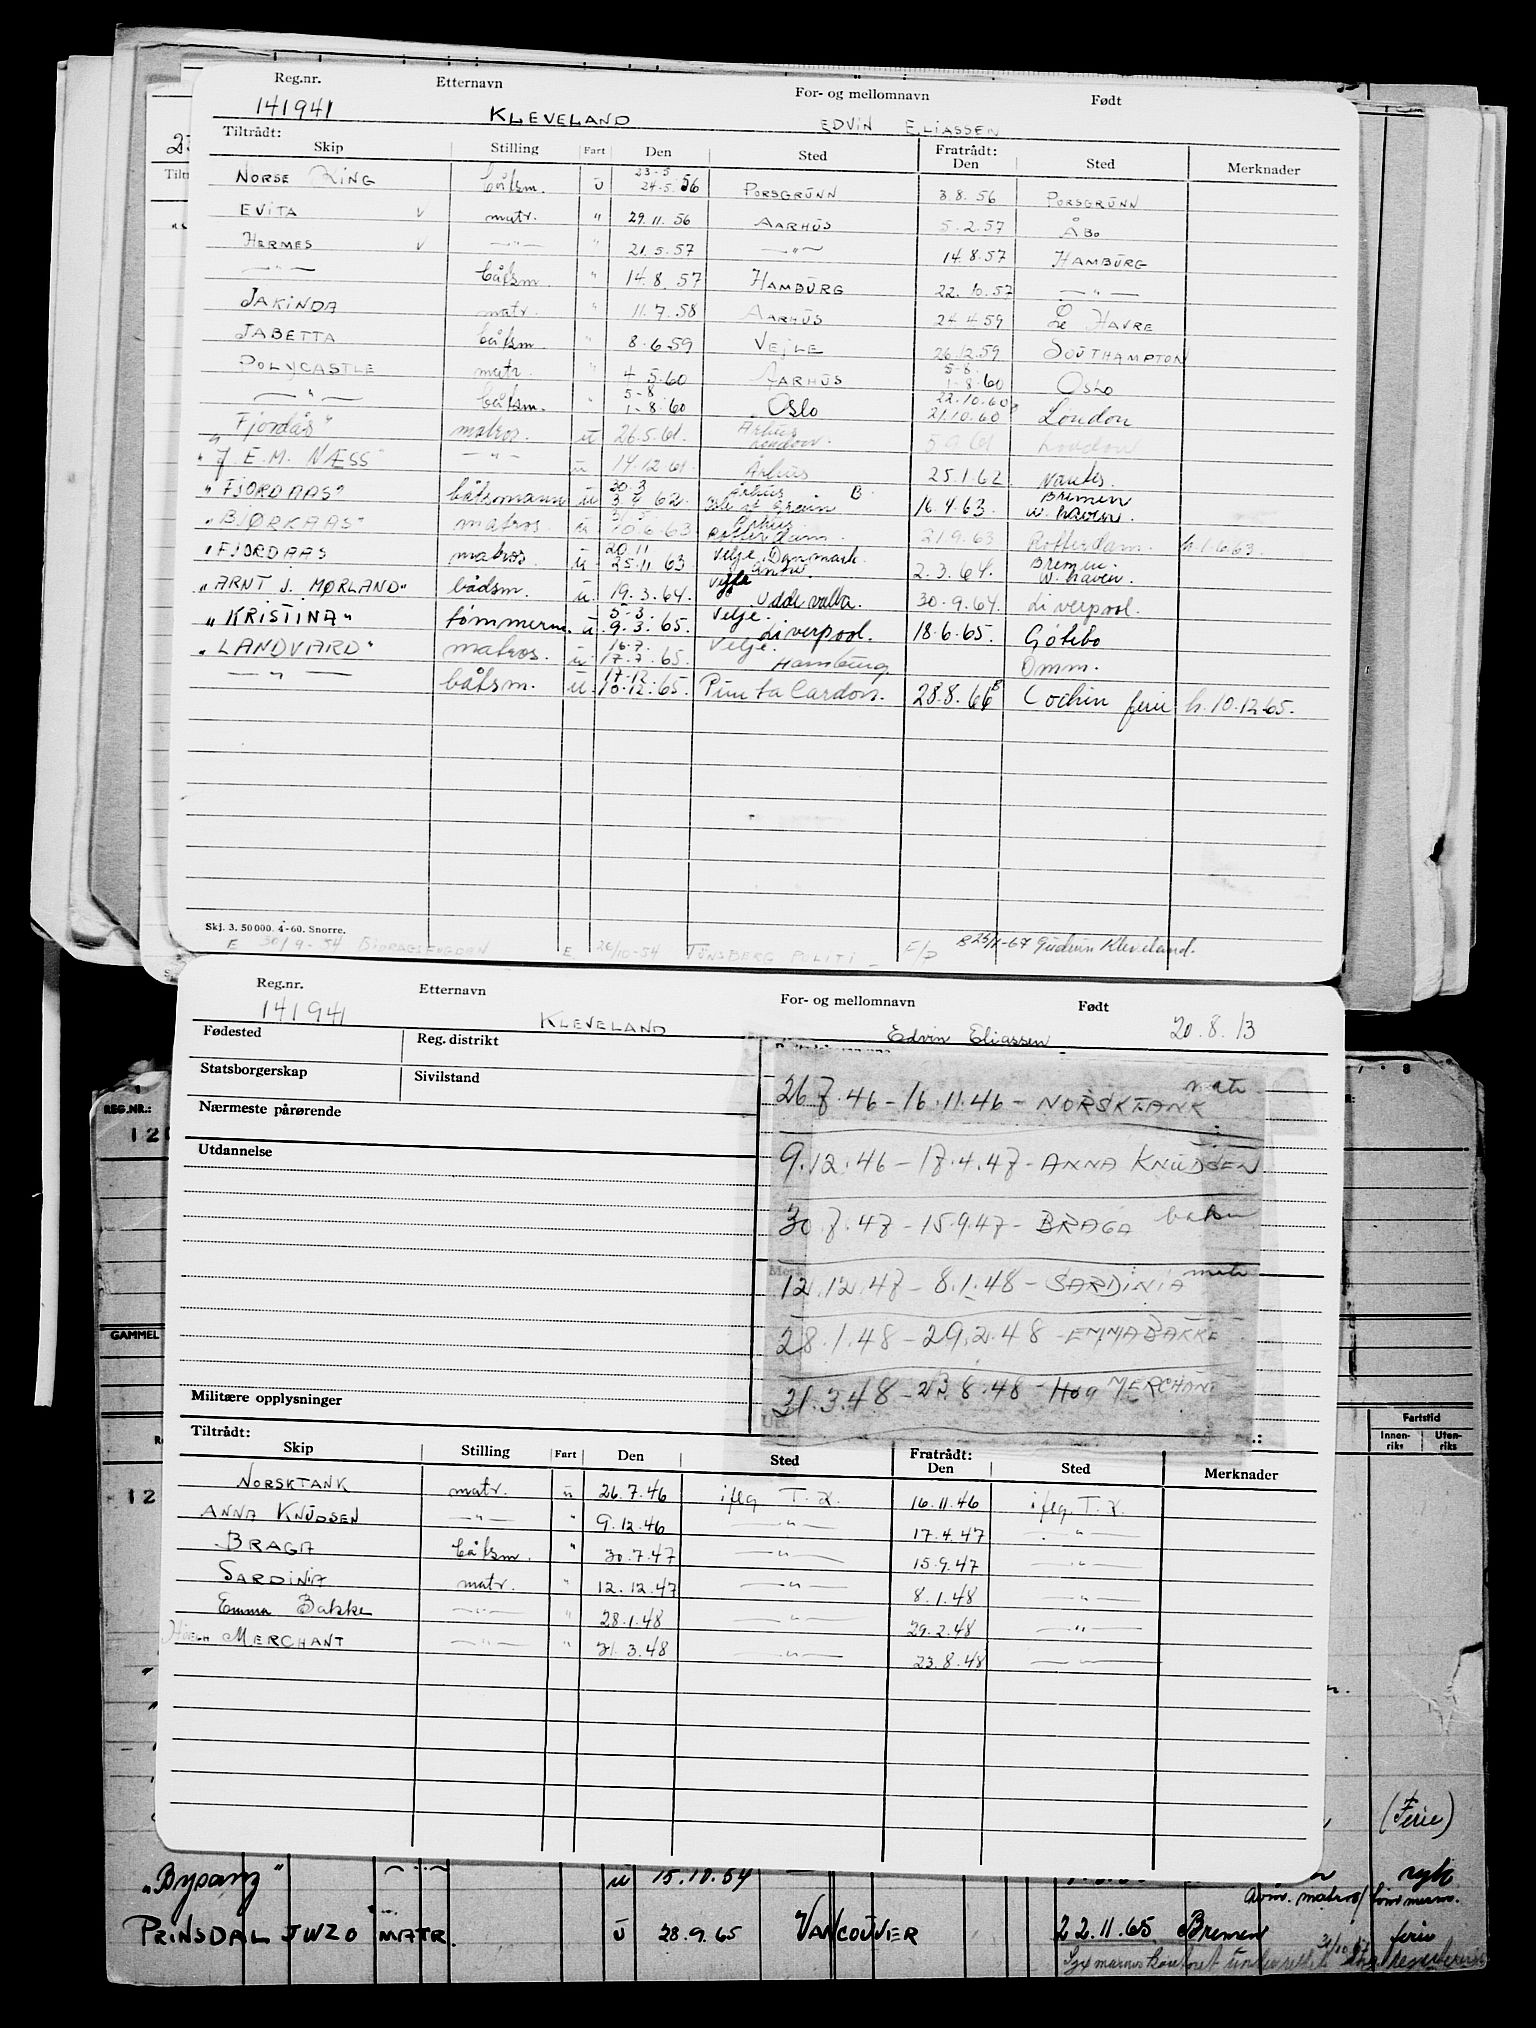 Reg.nr. Etternavn For- og mellomnavn Født
141941 KLEVELAND EDVIN ELIASSEN
Tiltrådt: Fratrådt:
Skip Stilling Fart Den Sted Den Sted Merknader
NORSE KING båtsm. u 23-5 24.5.56 PORSGRUNN 3.8.56 PORSGRUNN
EVITA √ matr. " 29.11.56 AARHUS 5.2.57 ÅBO
HERMES √ —"— " 21.5.57 —"— 14.8.57 HAMBURG
—"— båtsm. " 14.8.57 HAMBURG 22.10.57 —"—
JAKINDA matr. " 11.7.58 AARHUS 24.4.59 LE HAVRE
JABETTA båtsm. " 8.6.59 VEJLE 26.12.59 SOUTHAMPTON
POLYCASTLE matr. " 4.5.60 AARHUS 5-8. 1-8.60 OSLO
—"— båtsm. " 5-8 1-8.60 Oslo 22.10.60 21.10.60 London
"Fjordås" matros. u 26.5.61. Århus London. 61 London
"J. E.M. NÆSS" —"— u 14.12.61 Århus 25.1.62 Nantes.
"FJORDAAS" båtsmann u 30.3 62. Århus B. 16.4.63. Bremen W. haven.
"BJØRKAAS" matros. u 63. Århus Rotterdam. 21.9.63 Rotterdam. h.1.6.63.
"FJORDAAS matros. u 20.11 25.11 63 Velje Danmark 2.3.64. Bremen. W. haven.
"ARNT J. MØRLAND" bådsm. u. 19.3.64. Vejle Uddevalla. 30.9.64. Liverpool.
"KRISTINA" tømmerm. u 5-3. 9.3.65. Velje. Liverpool. 18.6.65. Götebo
"LANDVARD" matros. u 16.7. 17.7.65. Velje. Hamburg Omm.
—"— båtsm. u. 17.12 10.12.65. Punta Cardon. 28.8.66 Cochin ferie h.10.12.65.
Skj. 3. 50 000. 4-60. Snorre.
E 30/9-54 BIDRAGSFOGDEN E. 26/10-54 TØNSBERG POLITI — Gudrun Kleveland.
Reg.nr. Etternavn For- og mellomnavn Født
141941 KLEVELAND Edvin Eliassen 20.8.13
Fødested Reg. distrikt
Statsborgerskap Sivilstand
Nærmeste pårørende
Utdannelse
matr
26.7.46 – 16.11.46 – NORSKTANK
9.12.46 – 17.4.47 – ANNA KNUDSEN
30.7.47 – 15.9.47 – BRAGA båtsm
12.12.47 – 8.1.48 – SARDINIA matr
28.1.48 – 29.2.48 – EMMA BAKKE
31.3.48 – 23.8.48 – Høg MERCHANT
Militære opplysninger
Tiltrådt: Fratrådt:
Skip Stilling Fart Den Sted Den Sted Merknader
NORSKTANK matr. u 26.7.46 iflg T.R. 16.11.46 iflg T.R.
ANNA KNUDSEN —"— " 9.12.46 —"— 17.4.47 —"—
BRAGA båtsm. " 30.7.47 —"— 15.9.47 —"—
SARDINIA matr. " 12.12.47 —"— 8.1.48 —"—
Emma Bakke —"— " 28.1.48 —"— 29.2.48 —"—
HØEGH MERCHANT —"— " 31.3.48 —"— 23.8.48 —"—
REG.NR.:
GAMMEL
Fartstid
Innen-riks Uten-riks
(Ferie)
"Bysanz" —"— u 15.10.64
matros/tømmerm.
PRINSDAL JWZO MATR. U 28.9.65 VANCOUVER 22.11.65 Bremen ferie